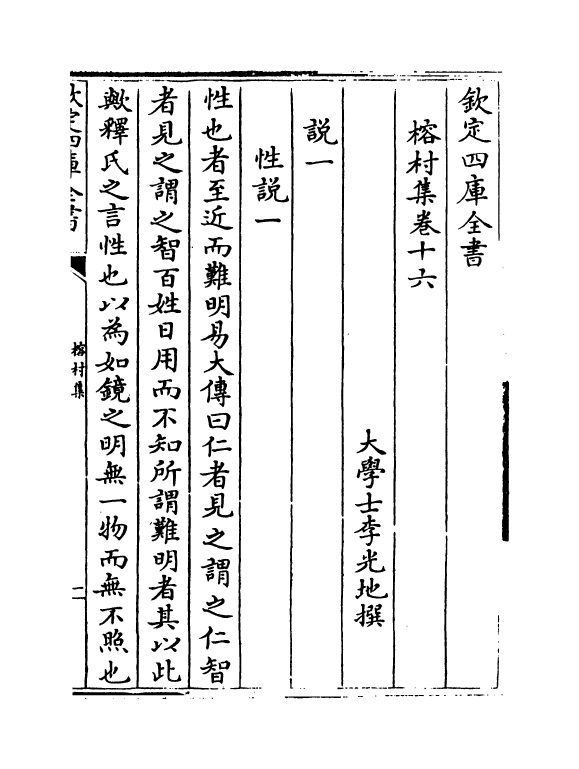 欽定四庫全書
榕村集卷十六
大學士李光地撰
説一
性説一
性也者至近而難明易大傳曰仁者見之謂之仁智
者見之謂之智百姓日用而不知所謂難明者其以此
歟釋氏之言性也以為如鏡之明無一物而無不照也
欽定四庫全書
榕村集